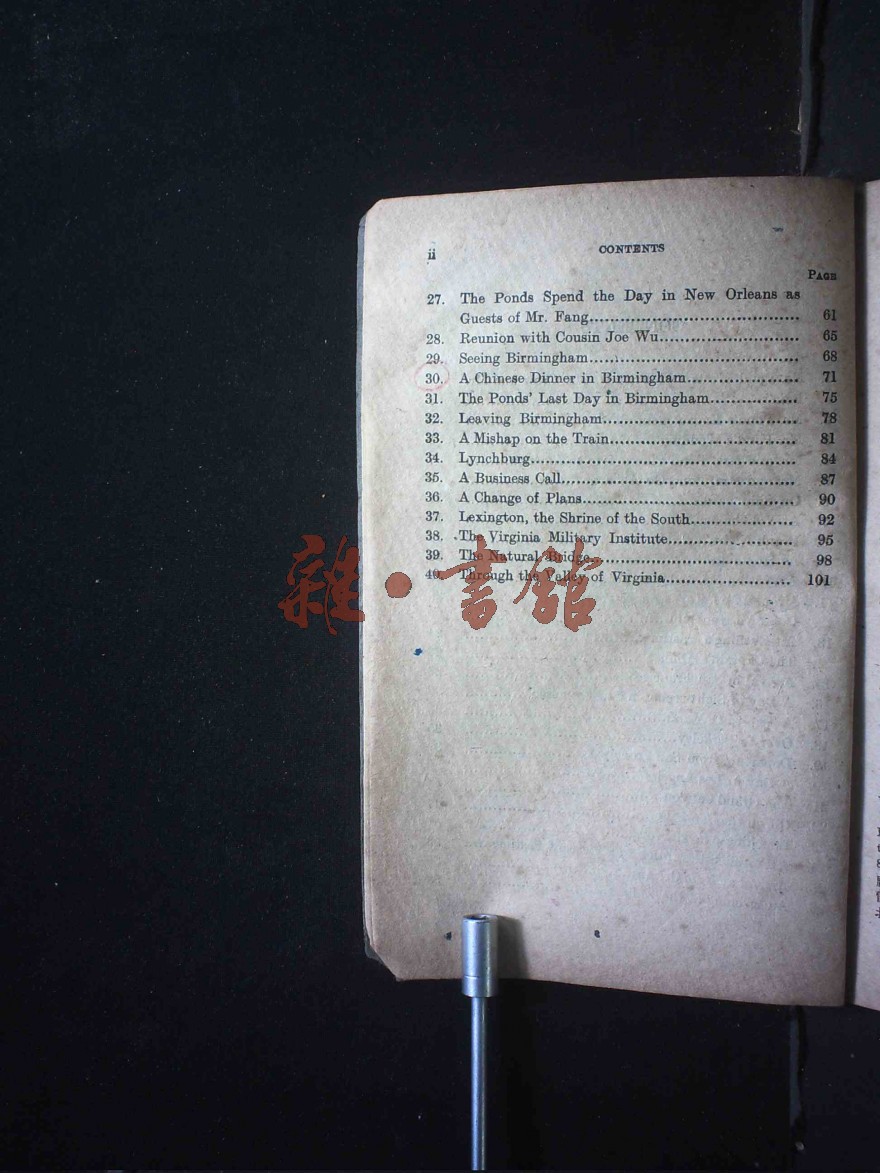 ii
CONTENTS
PAGE
27. The Ponds Spend the Day in New Orleans as
Guests of Mr. Fang........................................ 61
28. Reunion with Cousin Joe Wu........................... 65
29. Seeing Birmingham........................................ 68
30. A Chinese Dinner in Birmingham..................... 71
31. The Ponds' Last Day in Birmingham................. 75
32. Leaving Birmingham..................................... 78
33. A Mishap on the Train.................................... 81
34. Lynchburg................................................... 84
35. A Business Call............................................. 87
36. A Change of Plans......................................... 90
37. Lexington, the Shrine of the South.................... 92
38. The Virginia Military Institute........................ 95
39. The Natural Bridge....................................... 98
40. Through the Valley of Virginia........................ 101
雜·書館